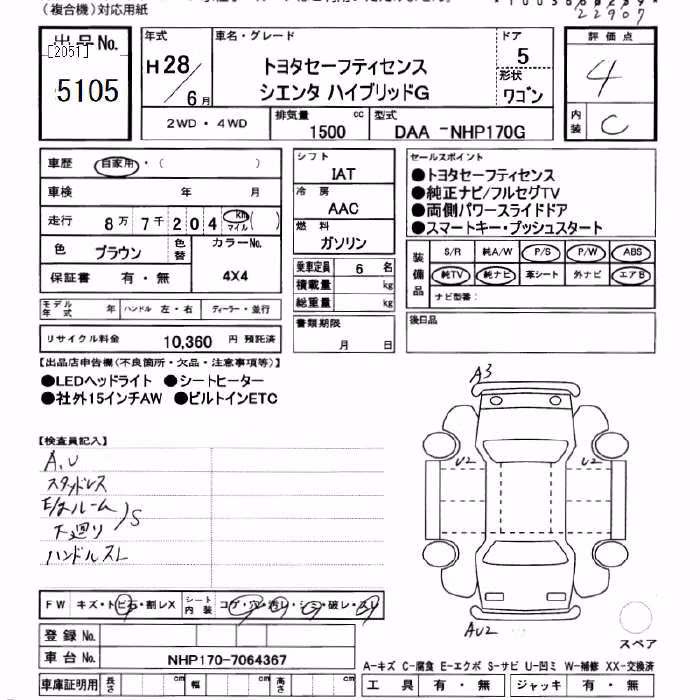 (複合機)対応用紙
22907
出品No.
[2051]
5105
年式
H28/6月
車名・グレード
トヨタセーフティセンス
シエンタ ハイブリッドG
ドア
5
形状
ワゴン
評価点
4
内装
C
2WD・4WD
排気量
1500 cc
型式
DAA-NHP170G
車歴 自家用・( )
車検 年 月
走行 8万7千204 km マイル( )
色 ブラウン
色替
カラーNo.
4X4
保証書 有・無
モデル年式 年 ハンドル 左・右 ディーラー・並行
リサイクル料金 10,360 円 預託済
シフト
IAT
冷房
AAC
燃料
ガソリン
乗車定員 6 名
積載量 kg
総重量 kg
書類期限
月 日
セールスポイント
●トヨタセーフティセンス
●純正ナビ/フルセグTV
●両側パワースライドドア
●スマートキー・プッシュスタート
装備品
S/R 純A/W P/S P/W ABS
純TV 純ナビ 革シート 外ナビ エアB
ナビ型番:
後日品
【出品店申告欄(不良箇所・欠品・注意事項等)】
●LEDヘッドライト ●シートヒーター
●社外15インチAW ●ビルトインETC
【検査員記入】
A,U
スタッドレス
E/gルーム
下廻り
S
ハンドルスレ
A3
U2
U2
AU2
スペア
FW キズ・トビ石・割レX
シート内装 コゲ・穴・汚レ・シミ・破レ・スレ
登録No.
車台No. NHP170-7064367
車庫証明用 長さ cm 幅 cm 高さ cm
A-キズ C-腐食 E-エクボ S-サビ U-凹ミ W-補修 XX-交換済
工具 有・無 ジャッキ 有・無